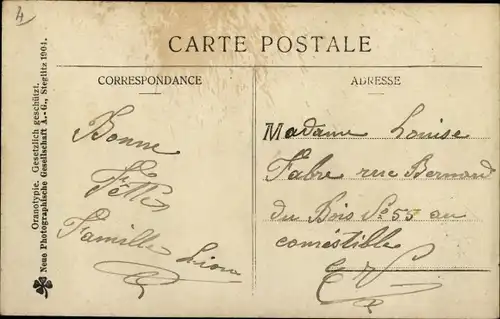 4
CARTE POSTALE
CORRESPONDANCE
Bonne
Fête
Famille Lion
ADRESSE
Madame Louise
Fabre rue Bernard
du Bois No 55 au
comestible
E V
Oranotypie. Gesetzlich geschützt.
Neue Photographische Gesellschaft A.-G., Steglitz 1904.